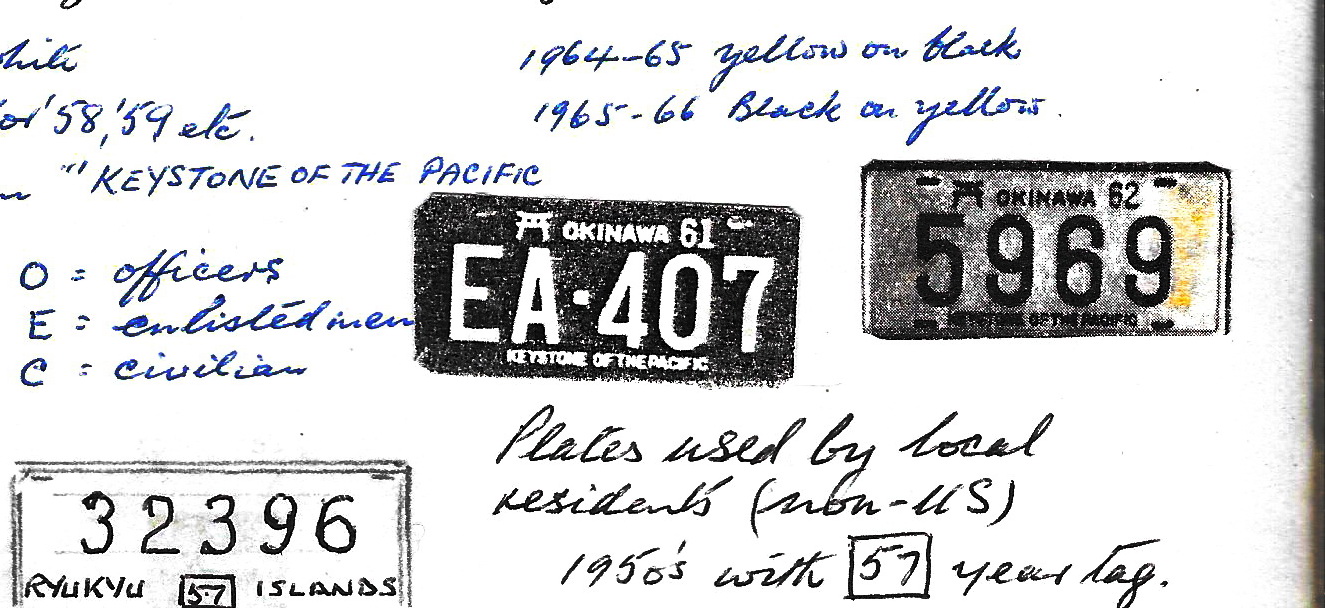 1964-65 yellow on black
1965-66 Black on yellow.
'58, '59 etc.
"KEYSTONE OF THE PACIFIC
O = officers
E = enlisted men
C = civilian
OKINAWA 61
EA·407
KEYSTONE OF THE PACIFIC
OKINAWA 62
5969
KEYSTONE OF THE PACIFIC
Plates used by local
residents (non-US)
1950's with 57 year tag.
32396
RYUKYU 57 ISLANDS